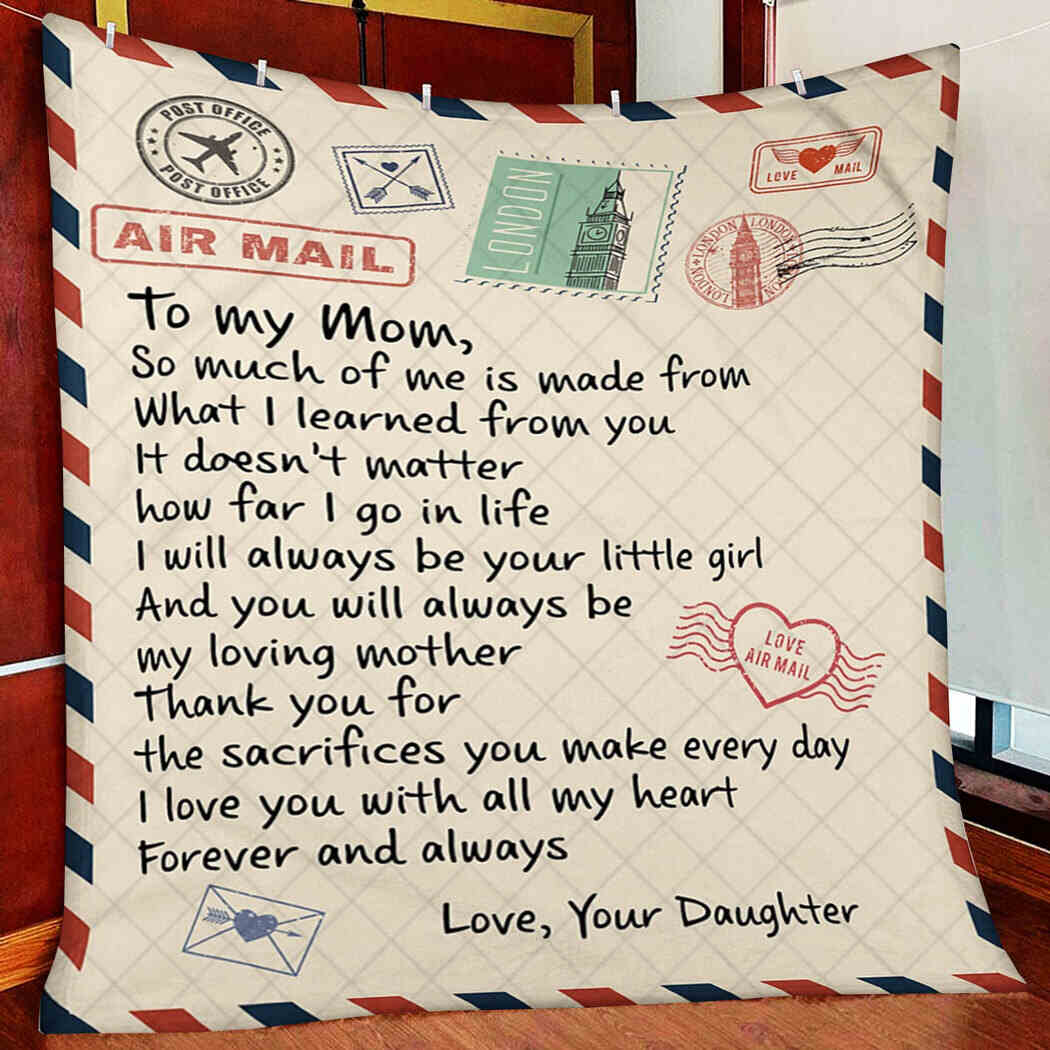 POST OFFICE
POST OFFICE
AIR MAIL
LONDON
LOVE MAIL
LONDON LONDON
LONDON LONDON
To my Mom,
So much of me is made from
What I learned from you
It doesn't matter
how far I go in life
I will always be your little girl
And you will always be
my loving mother
Thank you for
the sacrifices you make every day
I love you with all my heart
Forever and always
LOVE
AIR MAIL
Love, Your Daughter